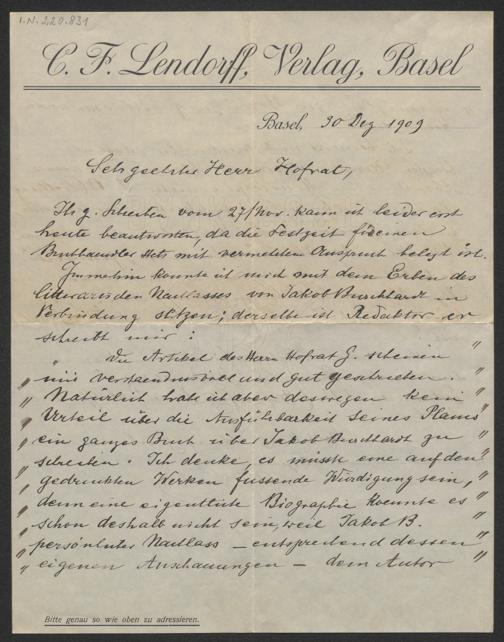 I.N. 220.831
C. F. Lendorff, Verlag, Basel
Basel, 30 Dez 1909
Sehr geehrter Herr Hofrat,
Ihr g. Schreiben vom 27/Nov. kann ich leider erst
heute beantworten, da die Festzeit für einen
Buchhaendler stets mit vermehrtem Anspruch belegt ist.
Immerhin konnte ich mich mit dem Erben des
litterarischen Nachlasses von Jakob Burckhardt in
Verbindung setzen; derselbe ist Redaktor er
schreibt mir:
" Die Artikel des Herrn Hofrat G. scheinen "
" mir verstaendnisvoll und gut geschrieben. "
" Natürlich habe ich aber deswegen kein "
" Urteil über die Ausführbarkeit seines Plans "
" ein ganzes Buch über Jakob Burckhardt zu "
" schreiben. Ich denke, es müsste eine auf den "
" gedruckten Werken fussende Würdigung sein, "
" denn eine eigentliche Biographie koennte es "
" schon deshalb nicht sein, weil Jakob B. "
" persönlicher Nachlass – entsprechend dessen "
" eigenen Anschauungen – dem Autor "
Bitte genau so wie oben zu adressieren.